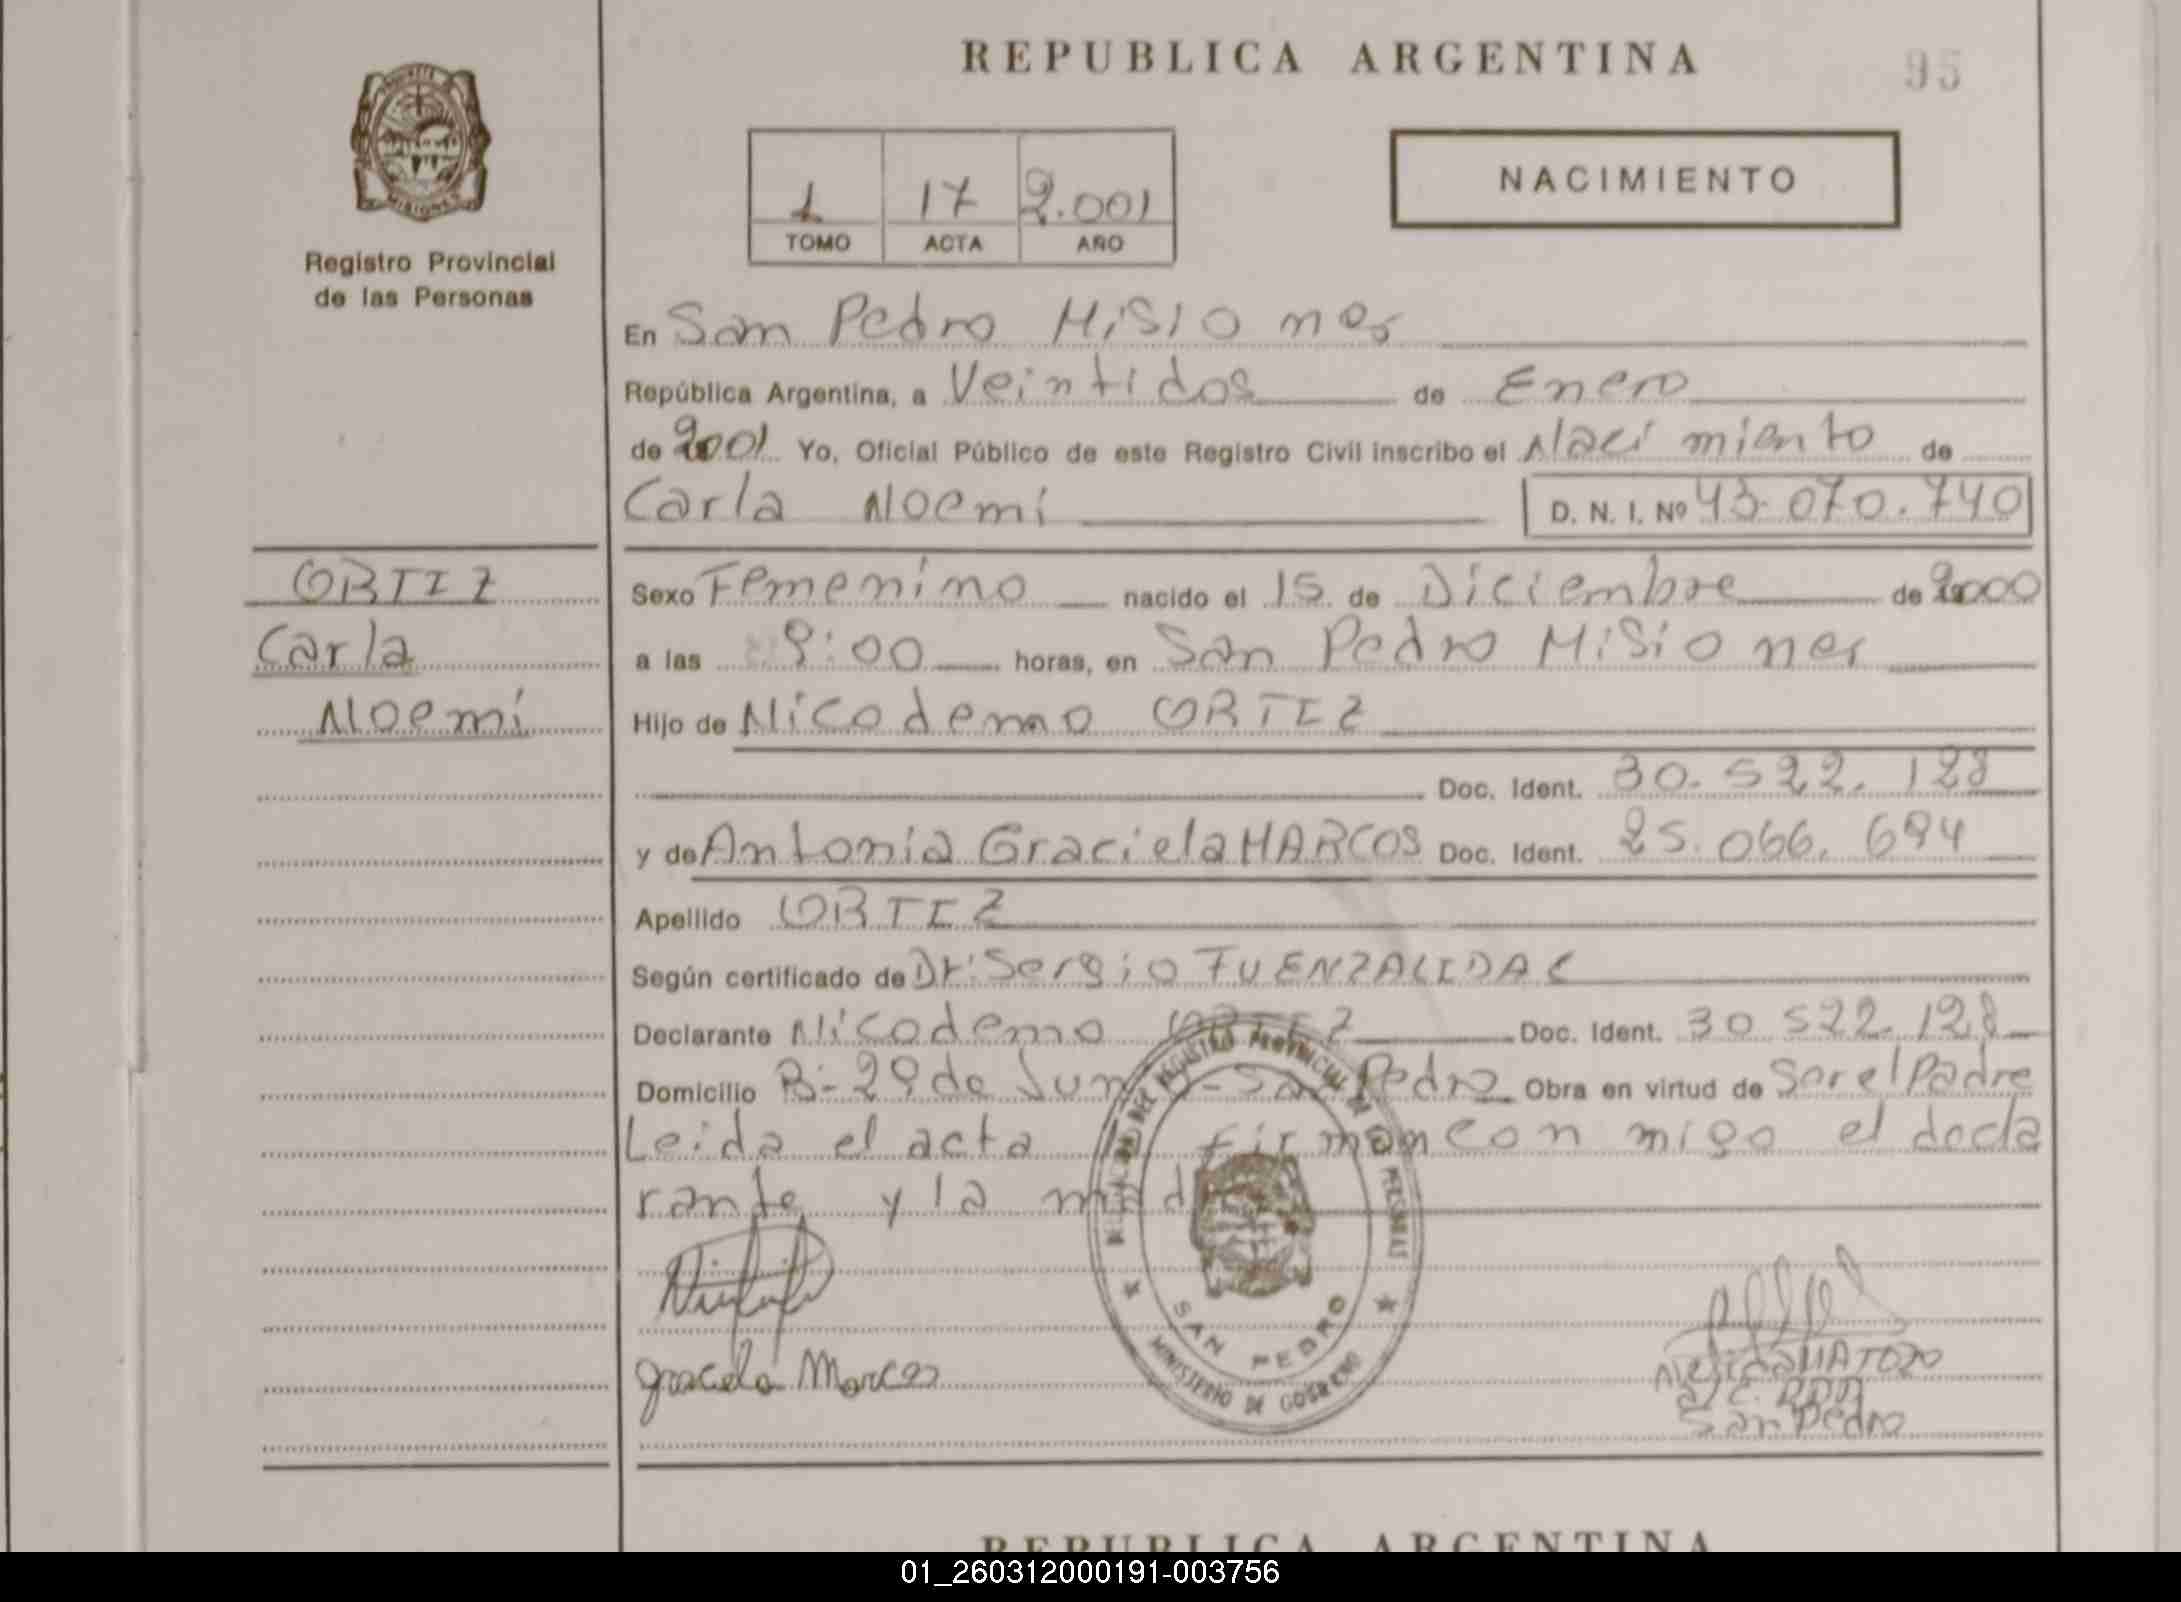 REPUBLICA ARGENTINA
95
MISIONES
Registro Provincial
de las Personas
1 17 2.001
TOMO ACTA AÑO
NACIMIENTO
En San Pedro Misiones
República Argentina, a Veintidos de Enero
de 2001 Yo, Oficial Público de este Registro Civil inscribo el Nacimiento de
Carla Noemí D. N. I. Nº 43.070.740
ORTIZ
Carla
Noemí
Sexo Femenino nacido el 15 de Diciembre de 2000
a las 9:00 horas, en San Pedro Misiones
Hijo de Nicodemo ORTIZ
Doc. Ident. 30.522.128
y de Antonia Graciela MARCOS Doc. Ident. 25.066.694
Apellido ORTIZ
Según certificado de Dr: Sergio FUENZALIDA C
Declarante Nicodemo ORTIZ Doc. Ident. 30 522.128
Domicilio B:-29 de Junio-San Pedro Obra en virtud de Ser el Padre
Leída el acta firman con migo el decla
rante y la madre
DEL REGISTRO PROVINCIAL DE LAS PERSONAS
SAN PEDRO
MINISTERIO DE GOBIERNO
graciela Marcos
MATOZO
San Pedro
REPUBLICA ARGENTINA
01_260312000191-003756